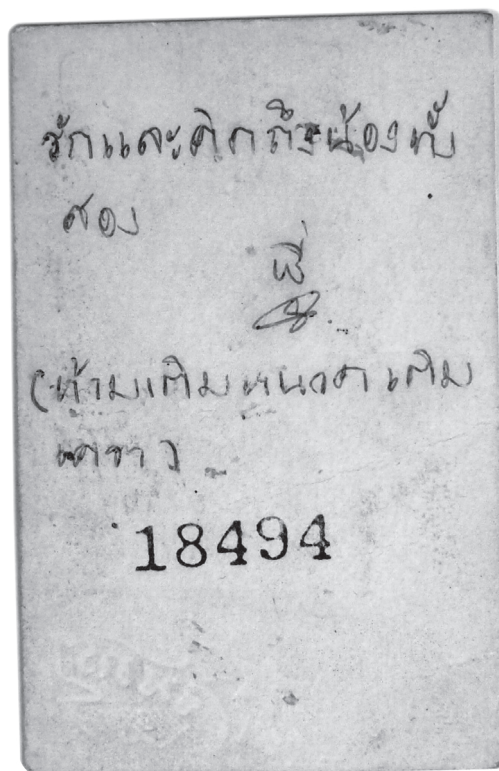 รักและคิดถึงน้องทั้ง
สอง
พี่
(ห้ามเติมหนวดเติม
เครา)
18494